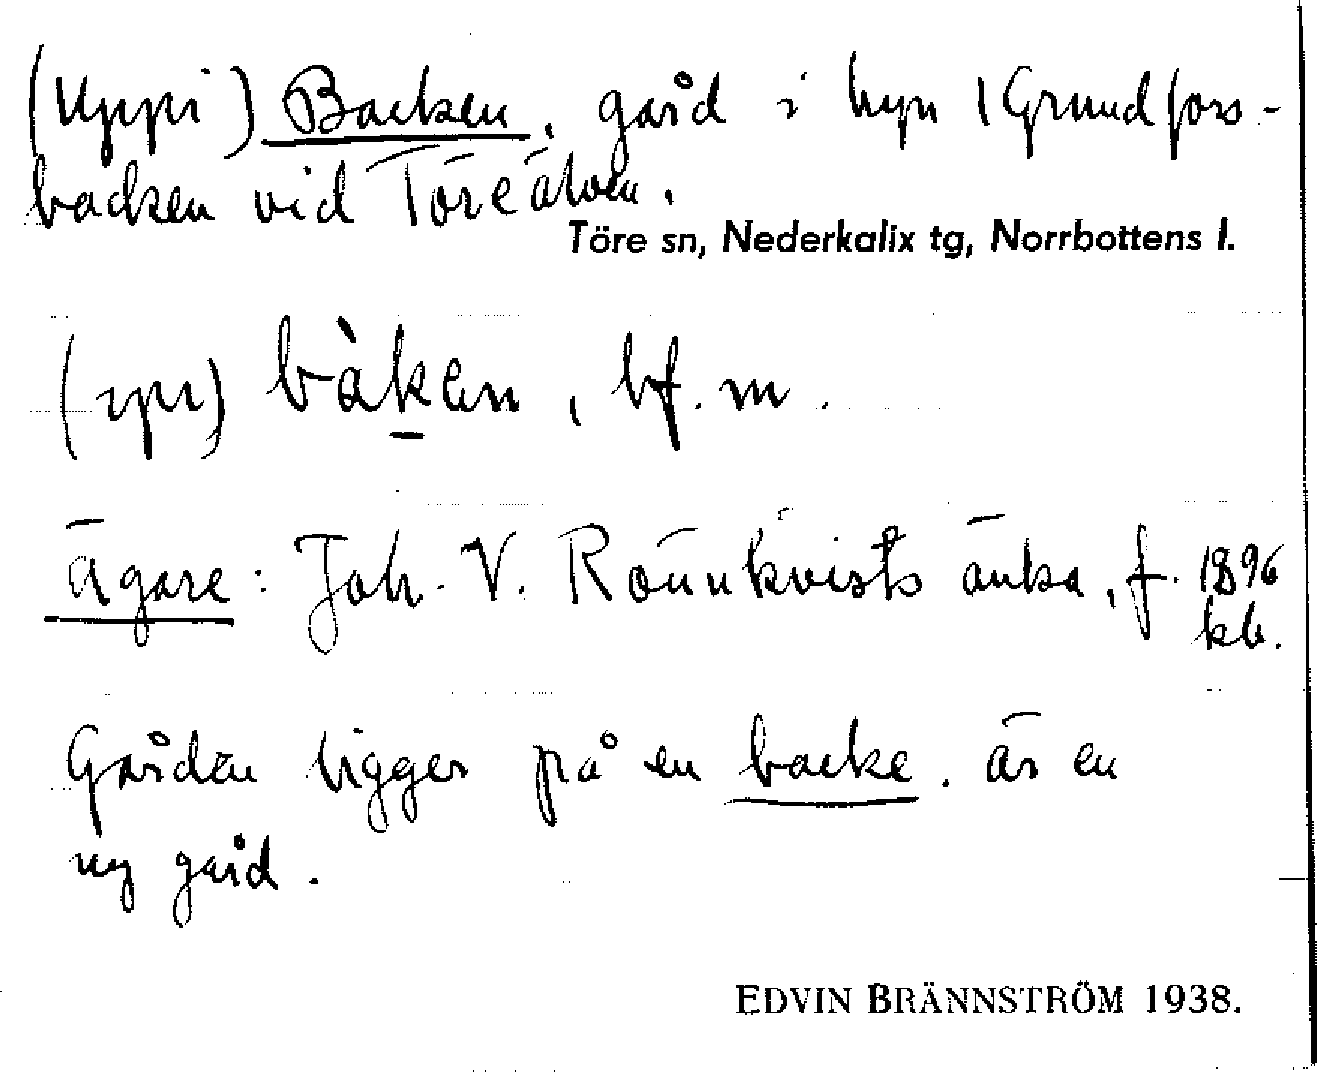 (Uppi) Backen, gård i byn Grundfors-
backen vid Töreälven.
Töre sn, Nederkalix tg, Norrbottens l.
bàken, bf. m.
Ägare: Joh. V. Rönnkvists änka, f. 1896
kb.
Gården ligger på en backe. är en
ny gård.
EDVIN BRÄNNSTRÖM 1938.